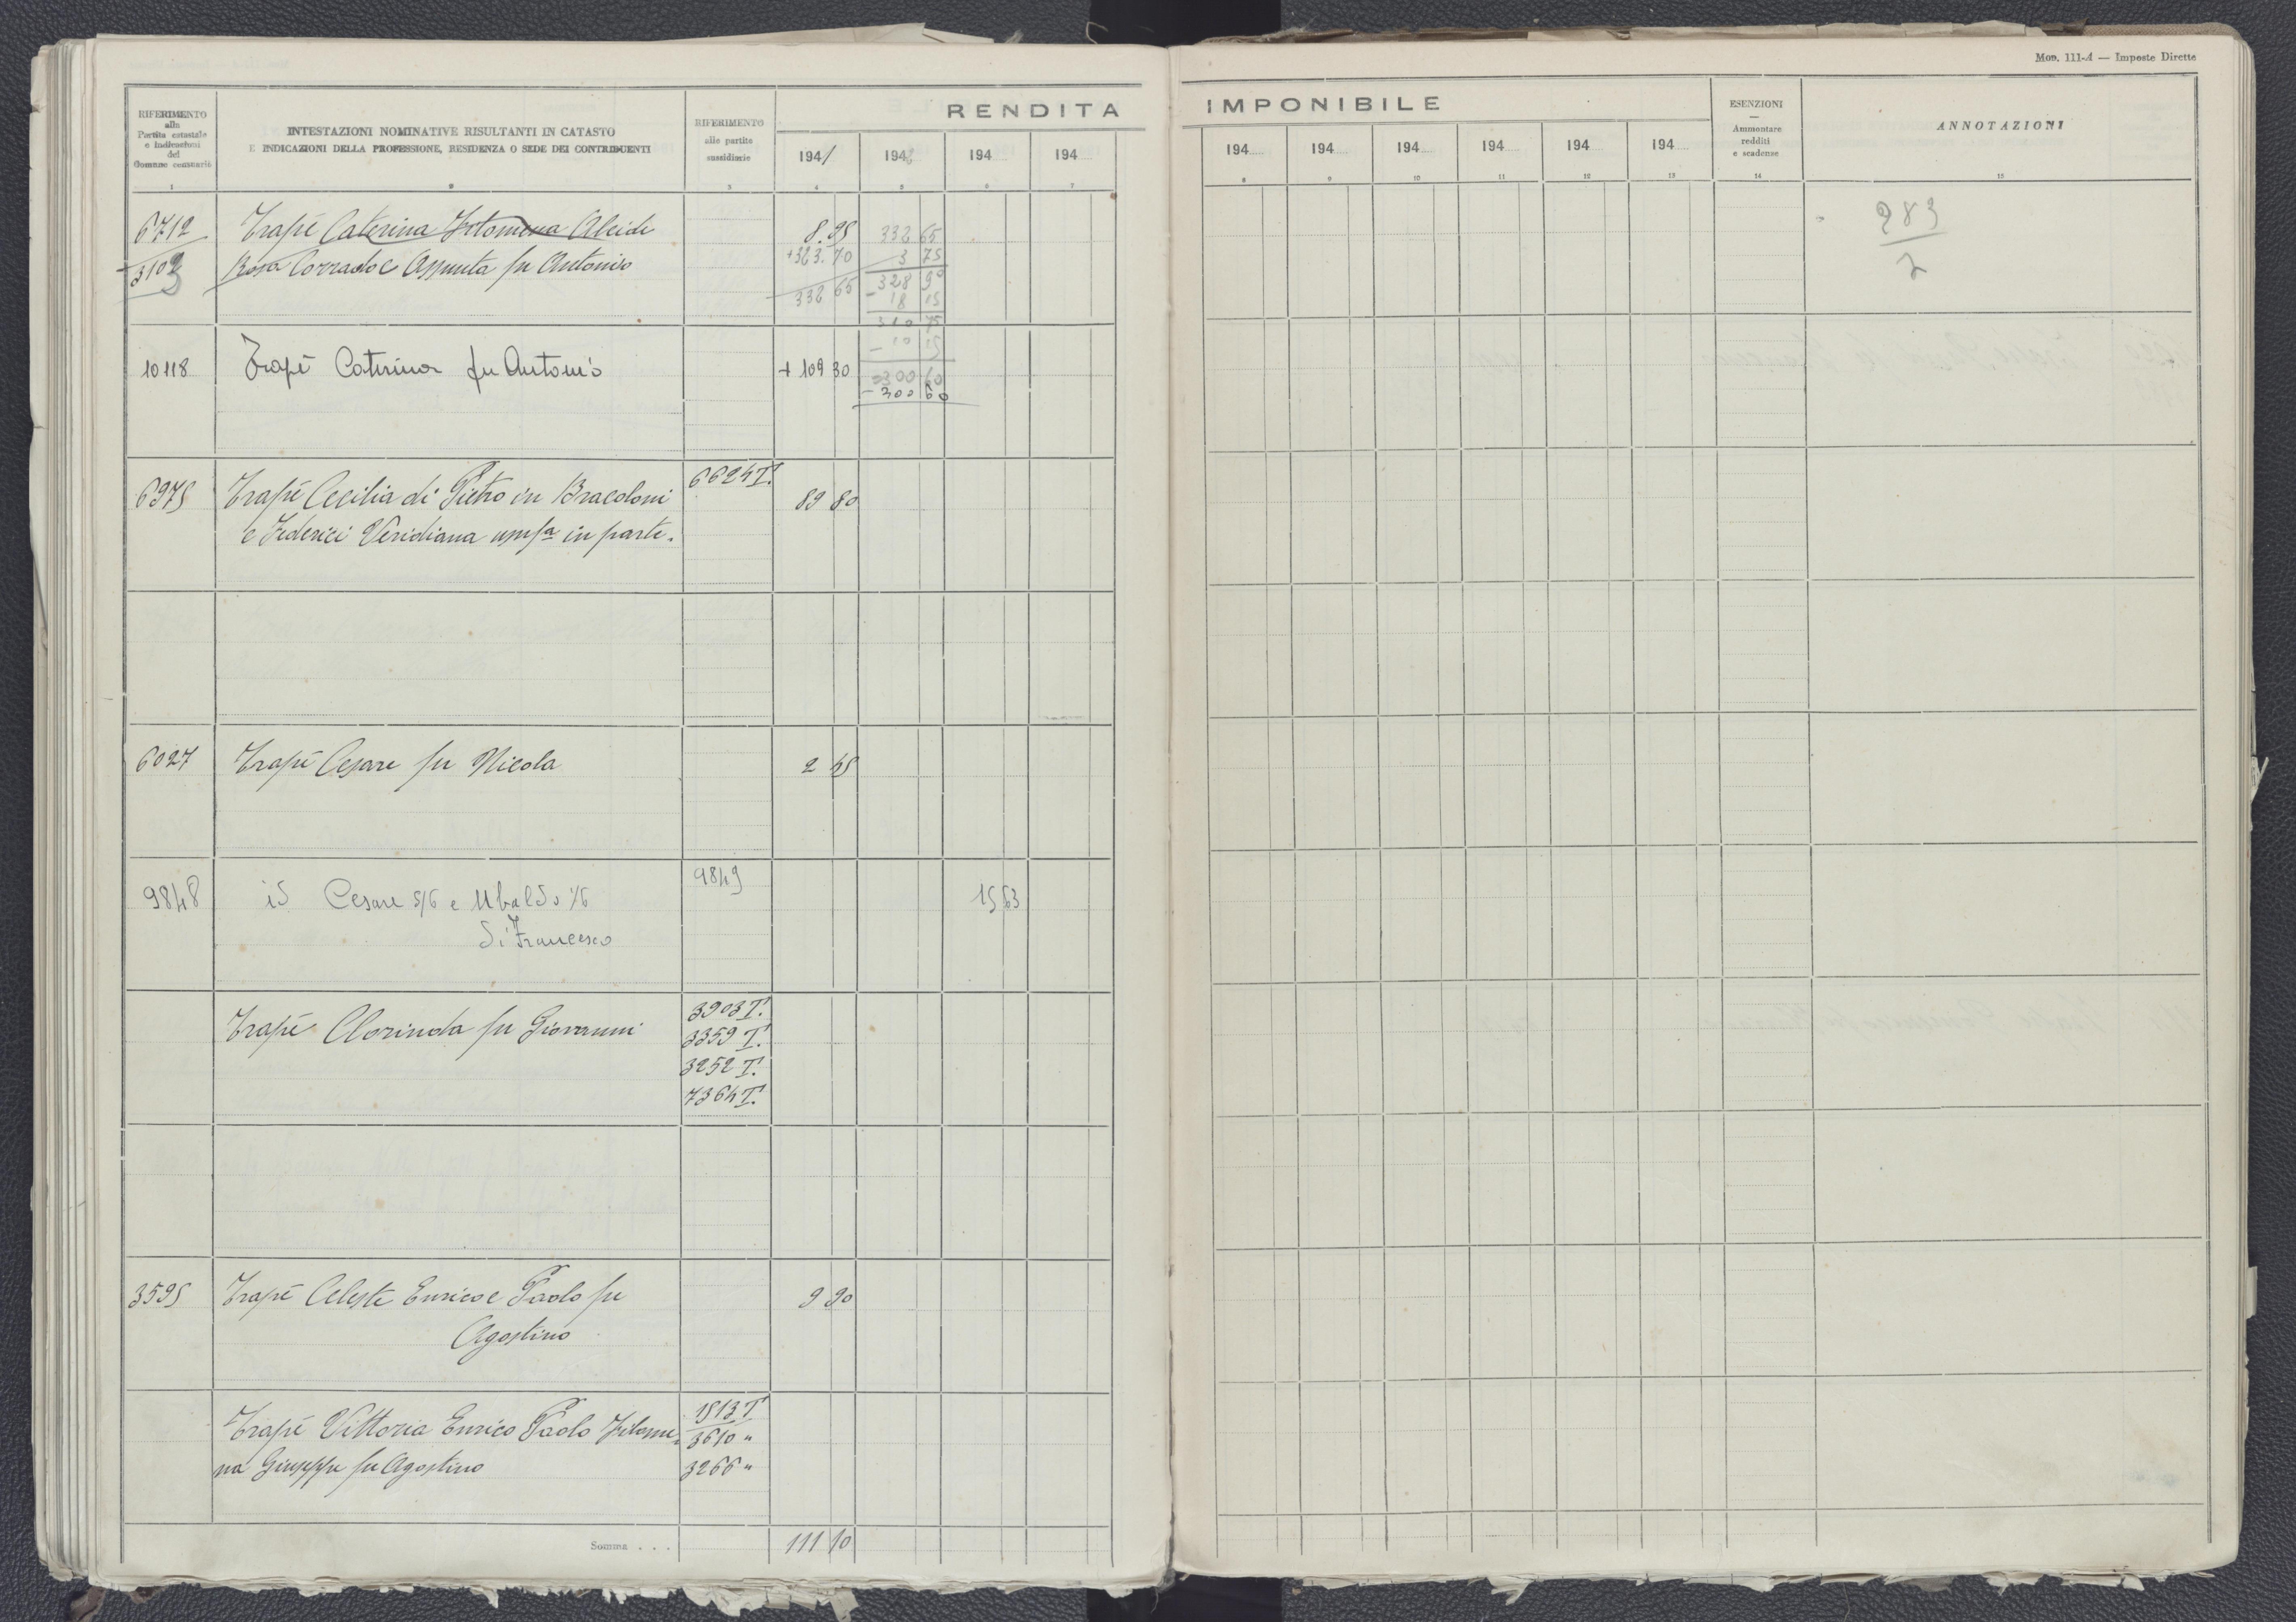 Mod. 111-A — Imposte Dirette
RIFERIMENTO
alla
Partita catastale
e indicazioni
del
Comune censuario
INTESTAZIONI NOMINATIVE RISULTANTI IN CATASTO
E INDICAZIONI DELLA PROFESSIONE, RESIDENZA O SEDE DEI CONTRIBUENTI
RIFERIMENTO
alle partite
sussidiarie
RENDITA IMPONIBILE
ESENZIONI
—
Ammontare
redditi
e scadenze
ANNOTAZIONI
1941 194 194 194 194 194 194 194 194 194
1 2 3 4 5 6 7 8 9 10 11 12 13 14 15
6712 Trapè Caterina Filomena Alcide 8.95 332 65 283
3103 Rosa Corrado e Assunta fu Antonio +323.70 3 75 2
332 65 328 90
- 18 15
310 75
- 10 15
10118 Trapè Caterina fu Antonio + 109 30 300 60
- 300 60
6975 Trapè Cecilia di Pietro in Bracoloni 6624 T. 89 80
e Federici Veridiana usufa in parte.
6027 Trapè Cesare fu Nicola 2 45
9848 id Cesare 5/6 e Ubaldo 1/6 9849 15 63
di Francesco
Trapè Clorinda fu Giovanni 3903 T.
3359 T.
3252 T.
7364 T.
3595 Trapè Celeste Enrico e Paolo fu 9 90
Agostino
Trapè Vittoria Enrico Paolo Filome- 1513 T
3610 "
na Giuseppe fu Agostino 3266 "
Somma . . . 111 10